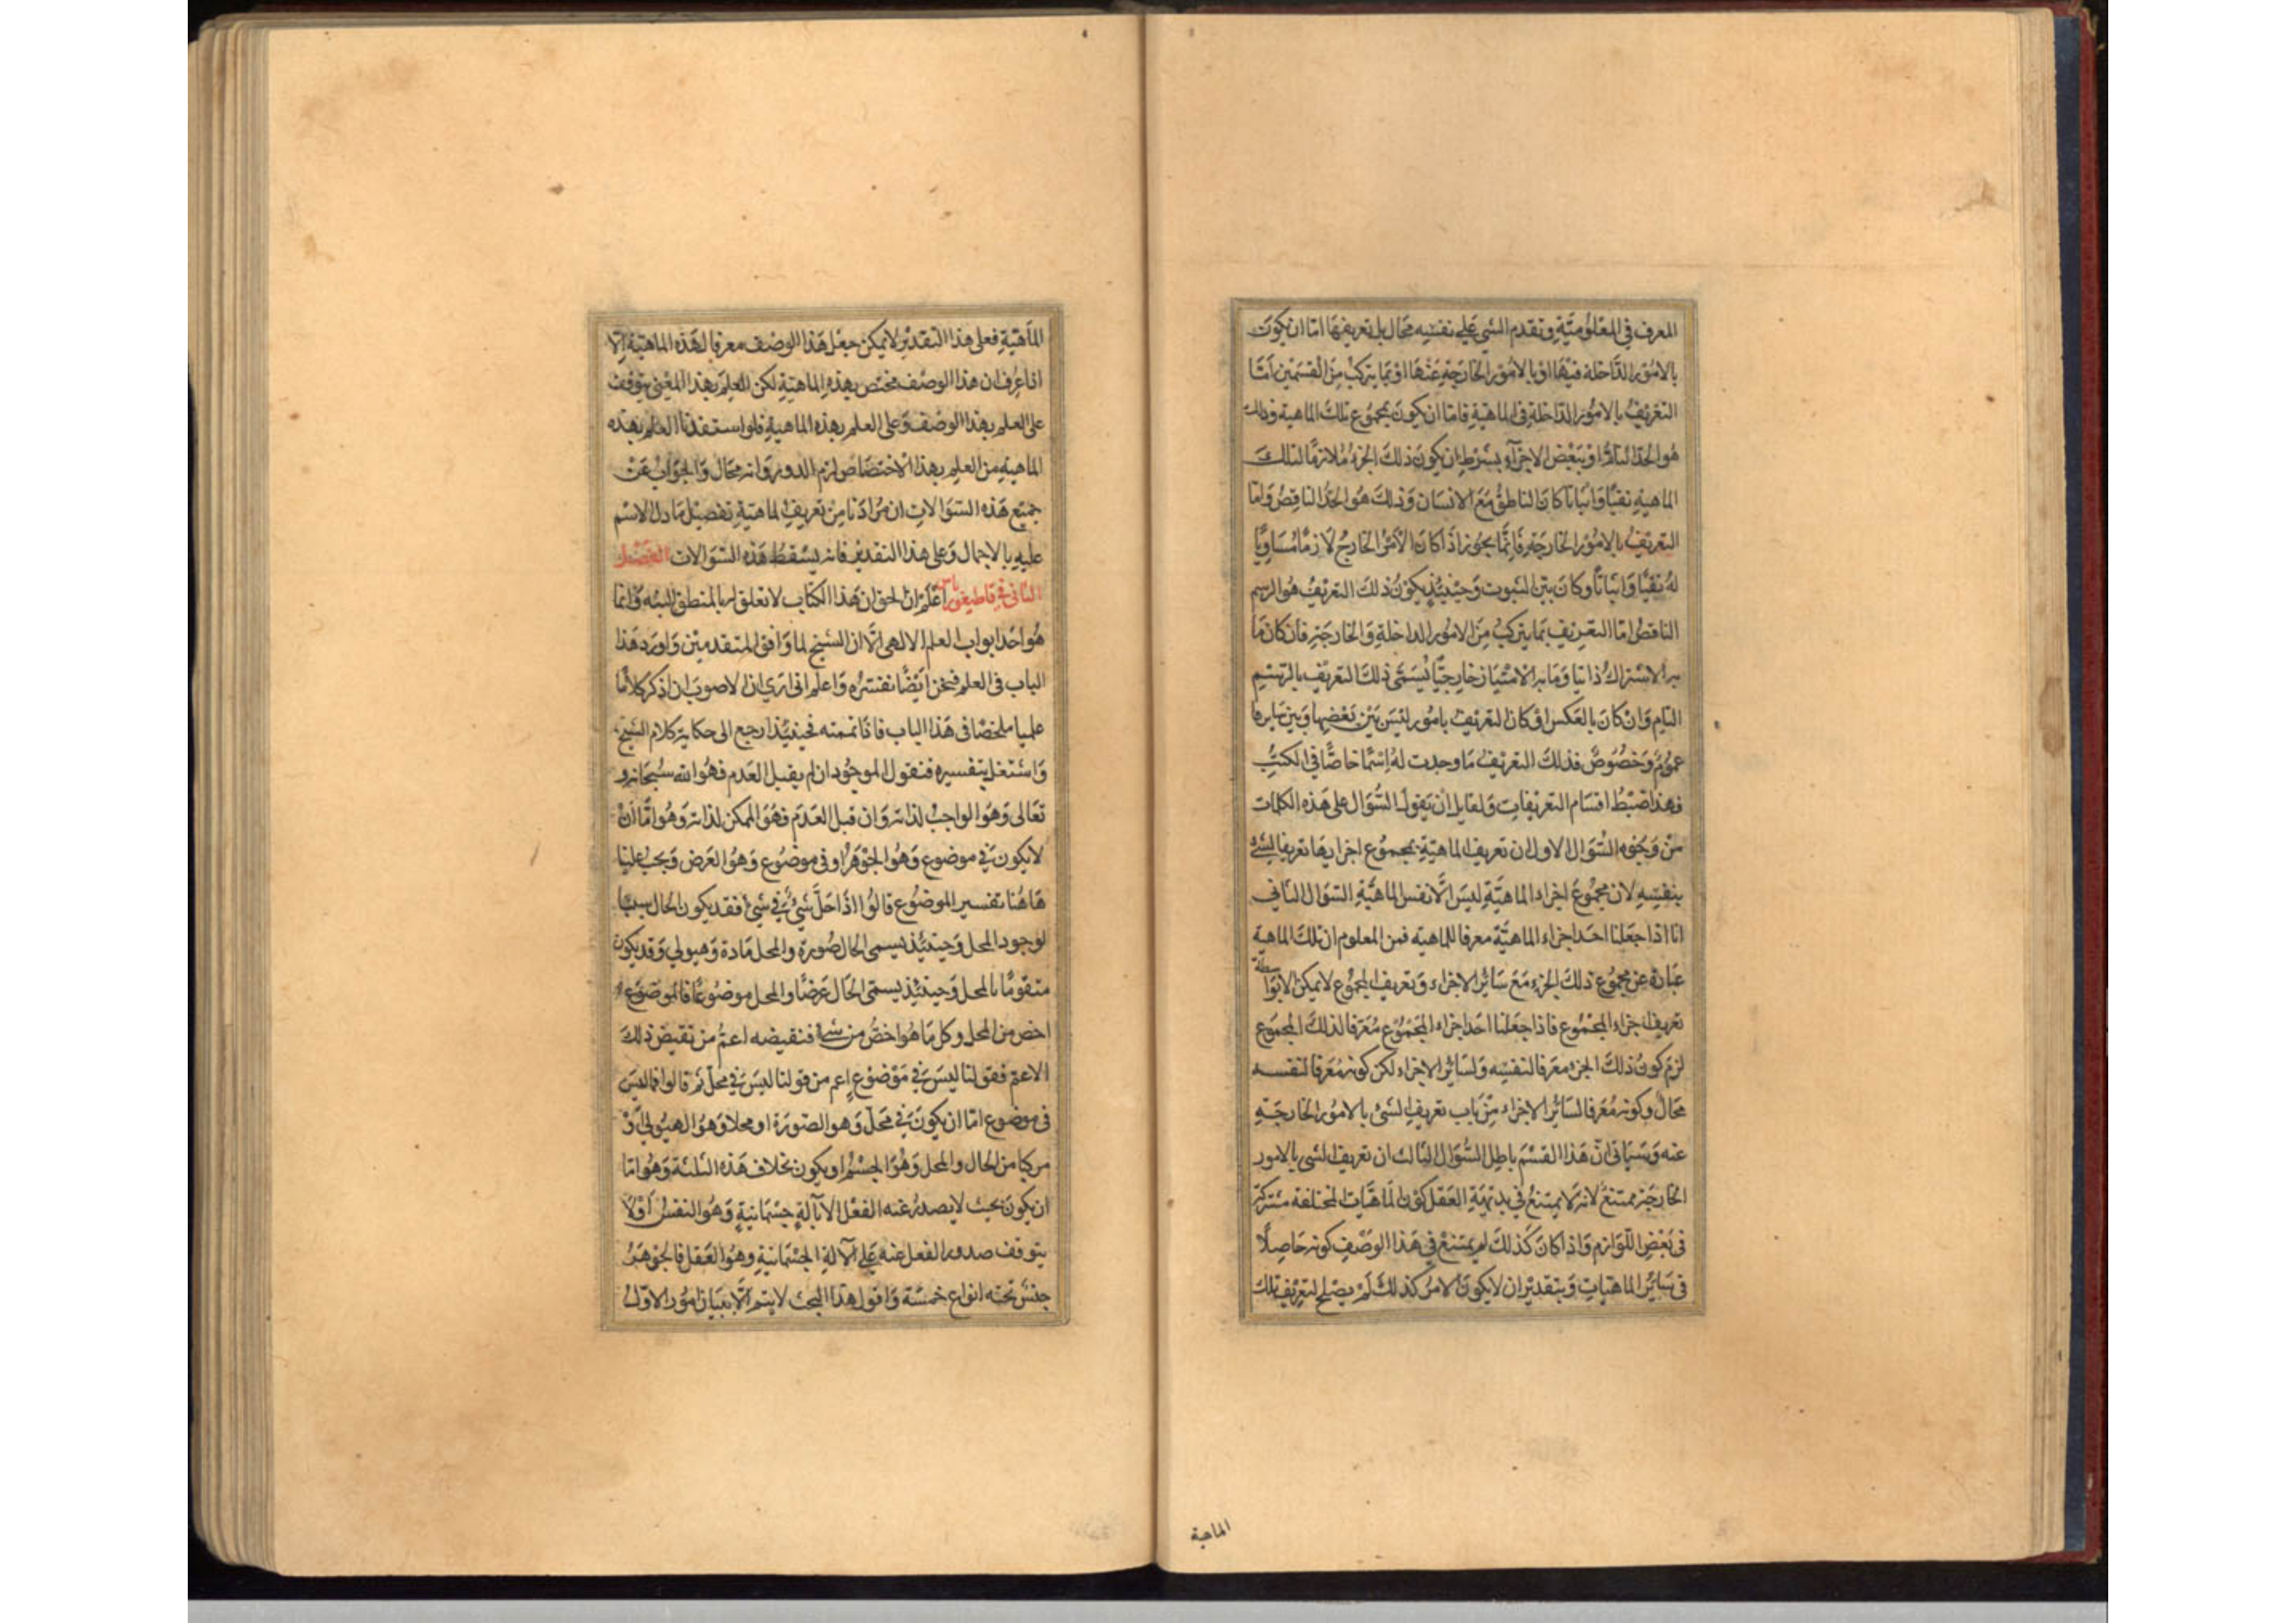 المعرف في المعلومية وتقدم الشي على نفسه محال بل تعريفها اما ان يكون
بالامور الداخلة فيها او بالامور الخارجة عنها او بما يتركب من القسمين اما
التعريف بالامور الداخلة في الماهية فاما ان يكون بمجموع تلك الماهية وذلك
هو الحد التام او ببعض الاجزآء بشرط ان يكون ذلك الجزء ملازما لتلك
الماهية نفيا واثباتا كان الناطق مع الانسان وذلك هو الحد الناقص واما
التعريف بالامور الخارجة فانما يجوز اذا كان الامر الخارج لازما مساويا
له نفيا واثباتا وكان بين الثبوت وحينئذ يكون ذلك التعريف هو الرسم
الناقص اما التعريف بما يتركب من الامور الداخلة والخارجة فان كان ما
به الاشتراك ذاتيا وما به الامتياز خارجيا يسمى ذلك التعريف بالرسم
التام وان كان بالعكس او كان التعريف بامور ليس بين بعضها وبين سايرها
عموم وخصوص فذلك التعريف ما وجدت له اسما خاصا في الكتب
فهذا ضبط اقسام التعريفات ولقايل ان يقول السؤال على هذه الكلمات
من وجوه السؤال الاول ان تعريف الماهية بمجموع اجزايها تعريف الشئ
بنفسه لان مجموع اجزاء الماهية ليس الا نفس الماهية السؤال الثاني
انا اذا جعلنا احد اجزاء الماهية معرفا للماهية فمن المعلوم ان تلك الماهية
عبارة عن مجموع ذلك الجزء مع سائر الاجزاء وتعريف المجموع لا يمكن الا بواسطة
تعريف اجزاء المجموع فاذا جعلنا احد اجزاء المجموع معرفا لذلك المجموع
لزم كون ذلك الجزء معرفا لنفسه ولسائر الاجزاء لكن كونه معرفا لنفسه
محال وكونه معرفا لسائر الاجزاء من باب تعريف الشئ بالامور الخارجة
عنه وسياتى ان هذا القسم باطل السؤال الثالث ان تعريف الشى بالامور
الخارجة ممتنع لانه لا يمتنع في بديهة العقل كون الماهيات المختلفة مشتركة
في بعض اللوازم واذا كان كذلك لم يمتنع في هذا الوصف كونه حاصلا
في سائر الماهيات وبتقدير ان لا يكون الامر كذلك لم يصلح لتعريف تلك
الماهية
الماهية فعلى هذا التقدير لا يمكن جعل هذا الوصف معرفا لهذه الماهية الا
اذا عرف ان هذا الوصف مختص بهذه الماهية لكن العلم بهذا المعنى يتوقف
على العلم بهذا الوصف وعلى العلم بهذه الماهية فلو استفدنا العلم بهذه
الماهية من العلم بهذا الاختصاص لزم الدور وانه محال والجواب عن
جميع هذه السؤالات ان مرادنا من تعريف الماهية تفصيل ما دل الاسم
عليه بالاجمال وعلى هذا التقدير فانه يسقط هذه السؤالات الفصل
الثاني في قاطيغورياس اعلم ان الحق ان هذا الكتاب لا تعلق له بالمنطق البته وانما
هو احد ابواب العلم الالهى الا ان الشيخ لما وافق المتقدمين واورد هذا
الباب في العلم فنحن ايضا نفسره واعلم انى ارى ان الاصوب ان اذكر كلاما
علميا ملخصا في هذا الباب فاذا تممته فحينئذ ارجع الى حكاية كلام الشيخ
واشتغل بتفسيره فنقول الموجود ان لم يقبل العدم فهو الله سبحانه و
تعالى وهو الواجب لذاته وان قبل العدم فهو الممكن لذاته وهو اما ان
لا يكون في موضوع وهو الجوهر او في موضوع وهو العرض ويجب علينا
هاهنا تفسير الموضوع قالوا اذا حل شئ في شئ فقد يكون الحال سببا
لوجود المحل وحينئذ يسمى الحال صورة والمحل مادة وهيولي وقد يكون
متقوما بالمحل وحينئذ يسمى الحال عرضا والمحل موضوعا فالموضوع
اخص من المحل وكل ما هو اخص من شئ فنقيضه اعم من نقيض ذلك
الاعم فقولنا ليس في موضوع اعم من قولنا ليس في محل ثم قالوا فما ليس
في موضوع اما ان يكون في محل وهو الصورة او محلا وهو الهيولي او
مركبا من الحال والمحل وهو الجسم او يكون بخلاف هذه الثلثة وهو اما
ان يكون بحيث لا يصدر عنه الفعل الا بآلة جسمانية وهو النفس او لا
يتوقف صدور الفعل عنه على الآلة الجسمانية وهو العقل فالجوهر
جنس تحته انواع خمسة واقول هذا البحث لا يتم الا ببيان امور الاول